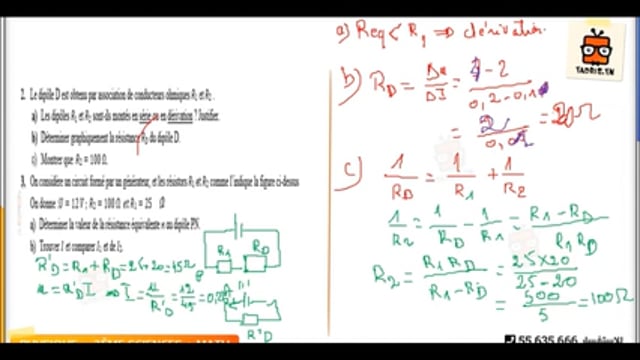 2. Le dipôle D est obtenu par association de conducteurs ohmiques R₁ et R₂ .
a) Les dipôles R₁ et R₂ sont-ils montés en série ou en dérivation ? Justifier.
b) Déterminer graphiquement la résistance R_D du dipôle D.
c) Montrer que R₂ = 100 Ω.
3. On considère un circuit formé par un générateur, et les résistors R₁ et R₂ comme l'indique la figure ci-dessus
On donne :U = 12 V ; R₂ = 100 Ω et R₁ = 25 Ω
a) Déterminer la valeur de la résistance équivalente e au dipôle PN.
b) Trouver I et comparer I₁ et de I₂.
R'D = R₁ + RD = 25 + 20 = 45 Ω
u = R'D I ⇒ I = u / R'D = 12 / 45 =
R₁ RD
R'D
a) Req < R₁ ⇒ dérivation.
b) RD = Δu / ΔI = 4-2 / 0,2-0,1
= 2 / 0,1 = 20Ω
c) 1/RD = 1/R₁ + 1/R₂
1/R₂ = 1/RD - 1/R₁ = R₁ - RD / R₁ RD
R₂ = R₁ RD / R₁ - RD = 25×20 / 25-20
= 500 / 5 = 100Ω
TAORIS.TN
55.635.666